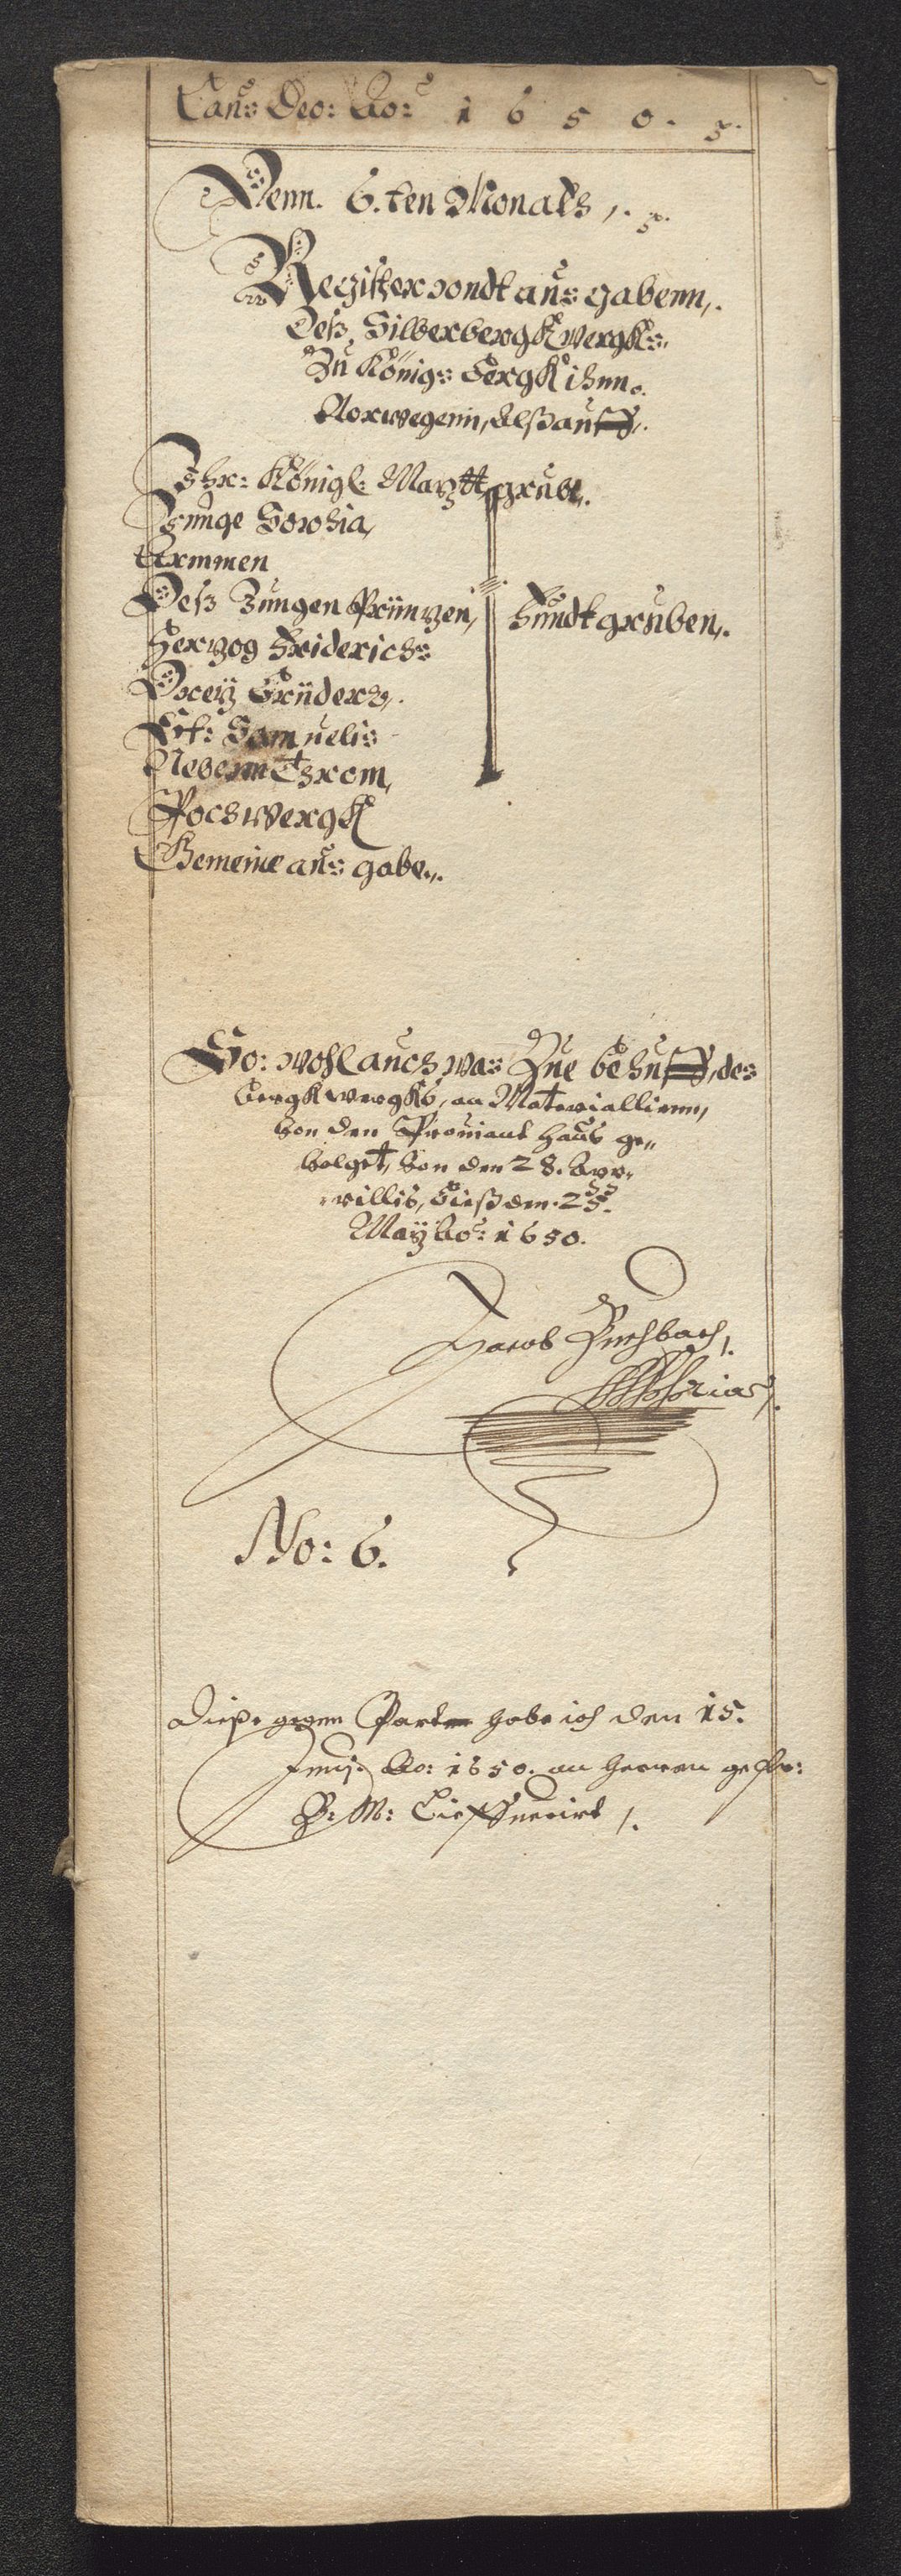 Laus Deo: Ao: 1650.
Denn. 6. ten Monats,.
Register vondt ausgabenn,.
Deß, Silberbergkwergks,
Zu Königs Bergk ihnn.
Norwegenn, Alß auff,.
Ihr: Königl: Maytt grube,.
Junge Sophia,
Armmen
Deß Jungen Printzen, fundtgruben,.
Hertzog Friderichs
Dreÿ Brüders,.
St: Samuelis
Nebenn Throm,
Pochwergk
Gemeine ausgabe,.
So: wohl auch was Zue behuff, des
Bergkwergks, an Materiallienn,
von den Proviant Hauß ge„
volget, von den 28. App„
rillis, Bieß den. 25.
Maÿ Ao: 1650.
Jacob
No: 6.
Dieße gegen Part habe ich den 15.
Junij. Ao: 1650. an Herren
B: M: Lieffuerirt /.